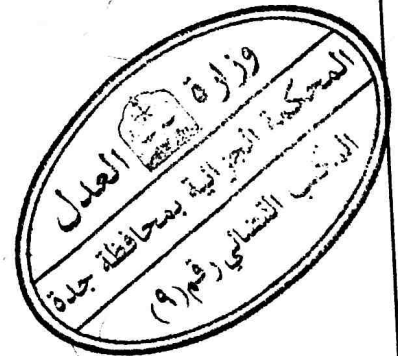 وزارة العدل
المحكمة الجزائية بمحافظة جدة
المكتب القضائي رقم (٩)